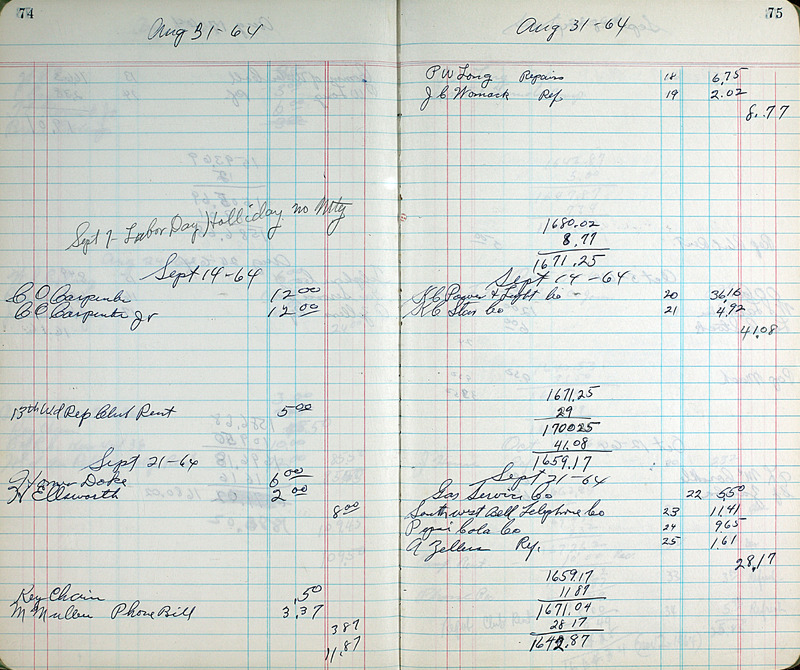 74
Aug 31-64
Sept 7- Labor Day Holliday no Mtg
Sept 14-64
C O Carpenter 12 00
C O Carpenter Jr 12 00
13th Wd Rep Club Rent 5 00
Sept 21-64
Homer Doke 6 00
H Ellsworth 2 00
8 00
Key Chain .50
McMullen Phone Bill 3.37
3 87
11.87
75
Aug 31-64
P W Long Repairs 18 6.75
J C Womack Rep 19 2.02
8.77
1680.02
8.77
1671.25
Sept 14-64
K C Power & Light Co 20 36.16
K C Star Co 21 4.92
41.08
1671.25
29
1700 25
41.08
1659.17
Sept 21-64
Gas Service Co 22 5 50
Southwest Bell Telephone Co 23 11.41
Pepsi Cola Co 24 9.65
A Zellers Rep. 25 1.61
28.17
1659.17
11.87
1671.04
28 17
1642.87